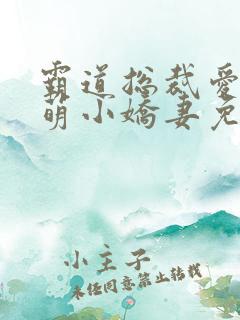 霸道总裁爱
萌小娇妻免
小主子
未经同意禁止转载